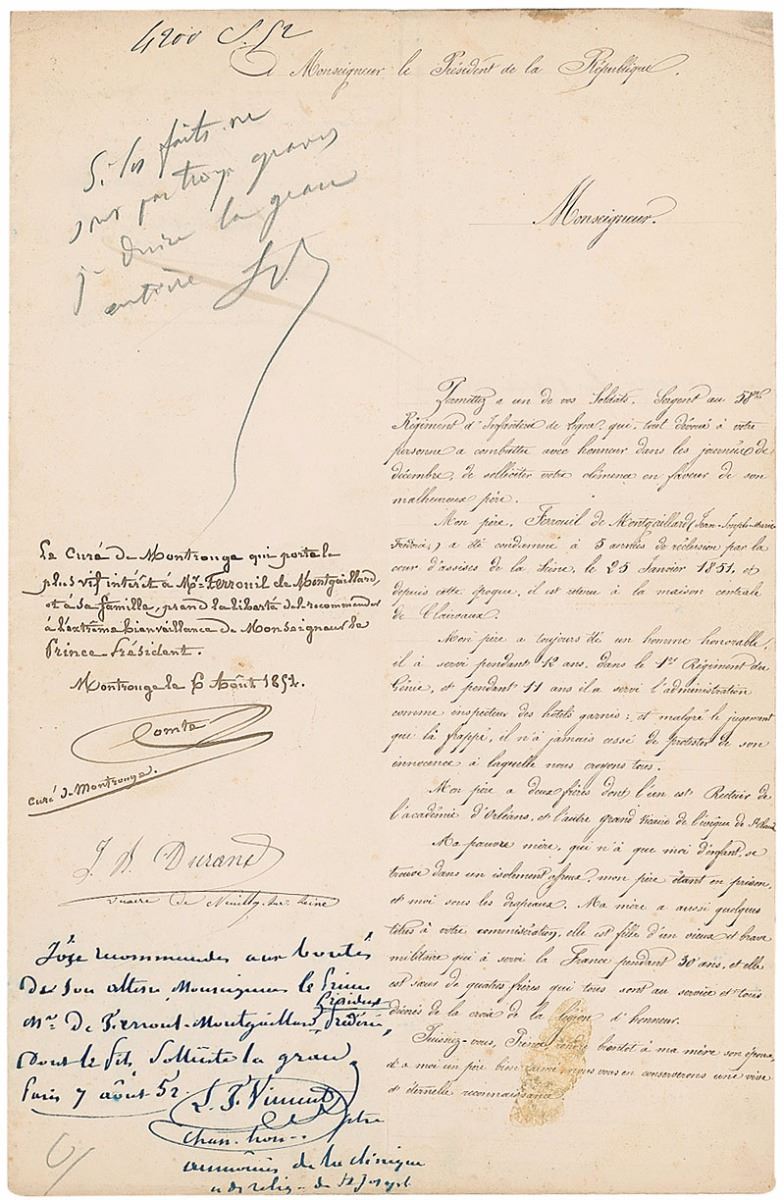 4200 S. 52
A Monseigneur le Président de la République.
Si les faits ne
sont pas trop graves
je désire la grace
entière
Monseigneur.
Permettez a un de vos Soldats, Sergent au 58me
Régiment d'Infanterie de Ligne, qui, tout dévoué à votre
personne a combattu avec honneur dans les journées de
décembre, de solliciter votre clémence en faveur de son
malheureux père.
Mon père, Ferrouil de Montgaillard (Jean-Joseph-Marie-
Frédéric,) a été condamné à 5 années de réclusion par la
cour d'assises de la Seine, le 25 Janvier 1851, et
depuis cette époque, il est retenu à la maison centrale
de Clairvaux.
Mon père a toujours été un homme honorable,
il à servi pendant 12 ans, dans le 1er Régiment du
Génie, et pendant 11 ans il a servi l'administration
comme inspecteur des hôtels garnis; et malgré le jugement
que l'a frappé, il n'à jamais cessé de protester de son
innocence à laquelle nous croyons tous.
Mon père a deux frères dont l'un est Recteur de
l'académie d'Orléans, et l'autre grand vicaire de l'évêque de
Ma pauvre mère, qui n'à que moi d'enfant, se
trouve dans un isolement affreux, mon père étant en prison,
et moi sous les drapeaux. Ma mère a aussi quelques
titres à votre commisération, elle est fille d'un vieux et brave
militaire qui à servi la France pendant 30 ans, et elle
est sœur de quatre frères qui tous sont au service et tous
décorés de la croix de la légion d'honneur.
Puissiez-vous, Prince, rendre bientôt à ma mère son époux,
et a moi un père bien aimé, nous vous en conserverons une vive
et éternelle reconnaissance.
Le Curé de Montrouge qui porte le
plus vif intérêt à Mr. Ferrouil de Montgaillard,
et à sa famille, prend la liberté de le recommander
à l'extrême bienveillance de Monseigneur le
Prince-Président.
Montrouge le 6 Août 1852.
Comte
curé de Montrouge.
J. B. Durand
vicaire de Neuilly-sur-Seine
J'ose recommander aux bontés
de Son altesse Monseigneur le Prince
Président
Mr. De Ferrouil-Montgaillard, Frédéric,
dont le fils sollicite la grace
Paris 7 août 52.
L. F. Vincent
ptre
chan. hon.
aumônier de la clinique
et des relig. de St Joseph